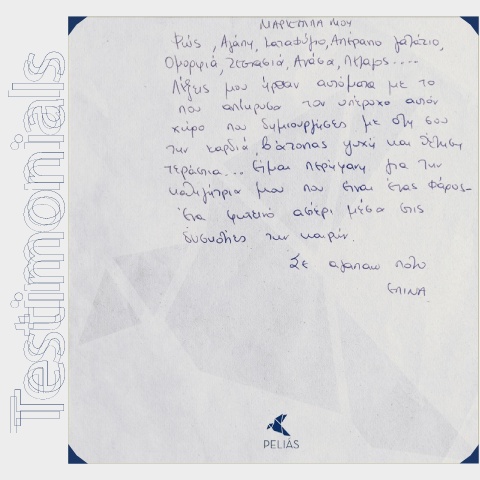 Testimonials
ΜΑΡΙΣΤΕΛΛΑ ΜΟΥ
Φώς, Αγάπη, Καταφύγιο, Απέραντο γαλάζιο,
Ομορφιά, Ζεστασιά, Ανάσα, Πέλαγος....
Λέξεις μου ήρθαν αυτόματα με το
που αντίκρυσα τον υπέροχο αυτόν
χώρο που δημιούργησες με όλη σου
την καρδιά, βάζοντας ψυχή και θέληση
τεράστια... Είμαι περήφανη για την
καθηγήτρια μου που είναι ένας Φάρος-
ένα φωτεινό αστέρι μέσα στις
δυσκολίες των καιρών.
Σε αγαπάω πολύ
ΕΛΙΝΑ
PELIÁS